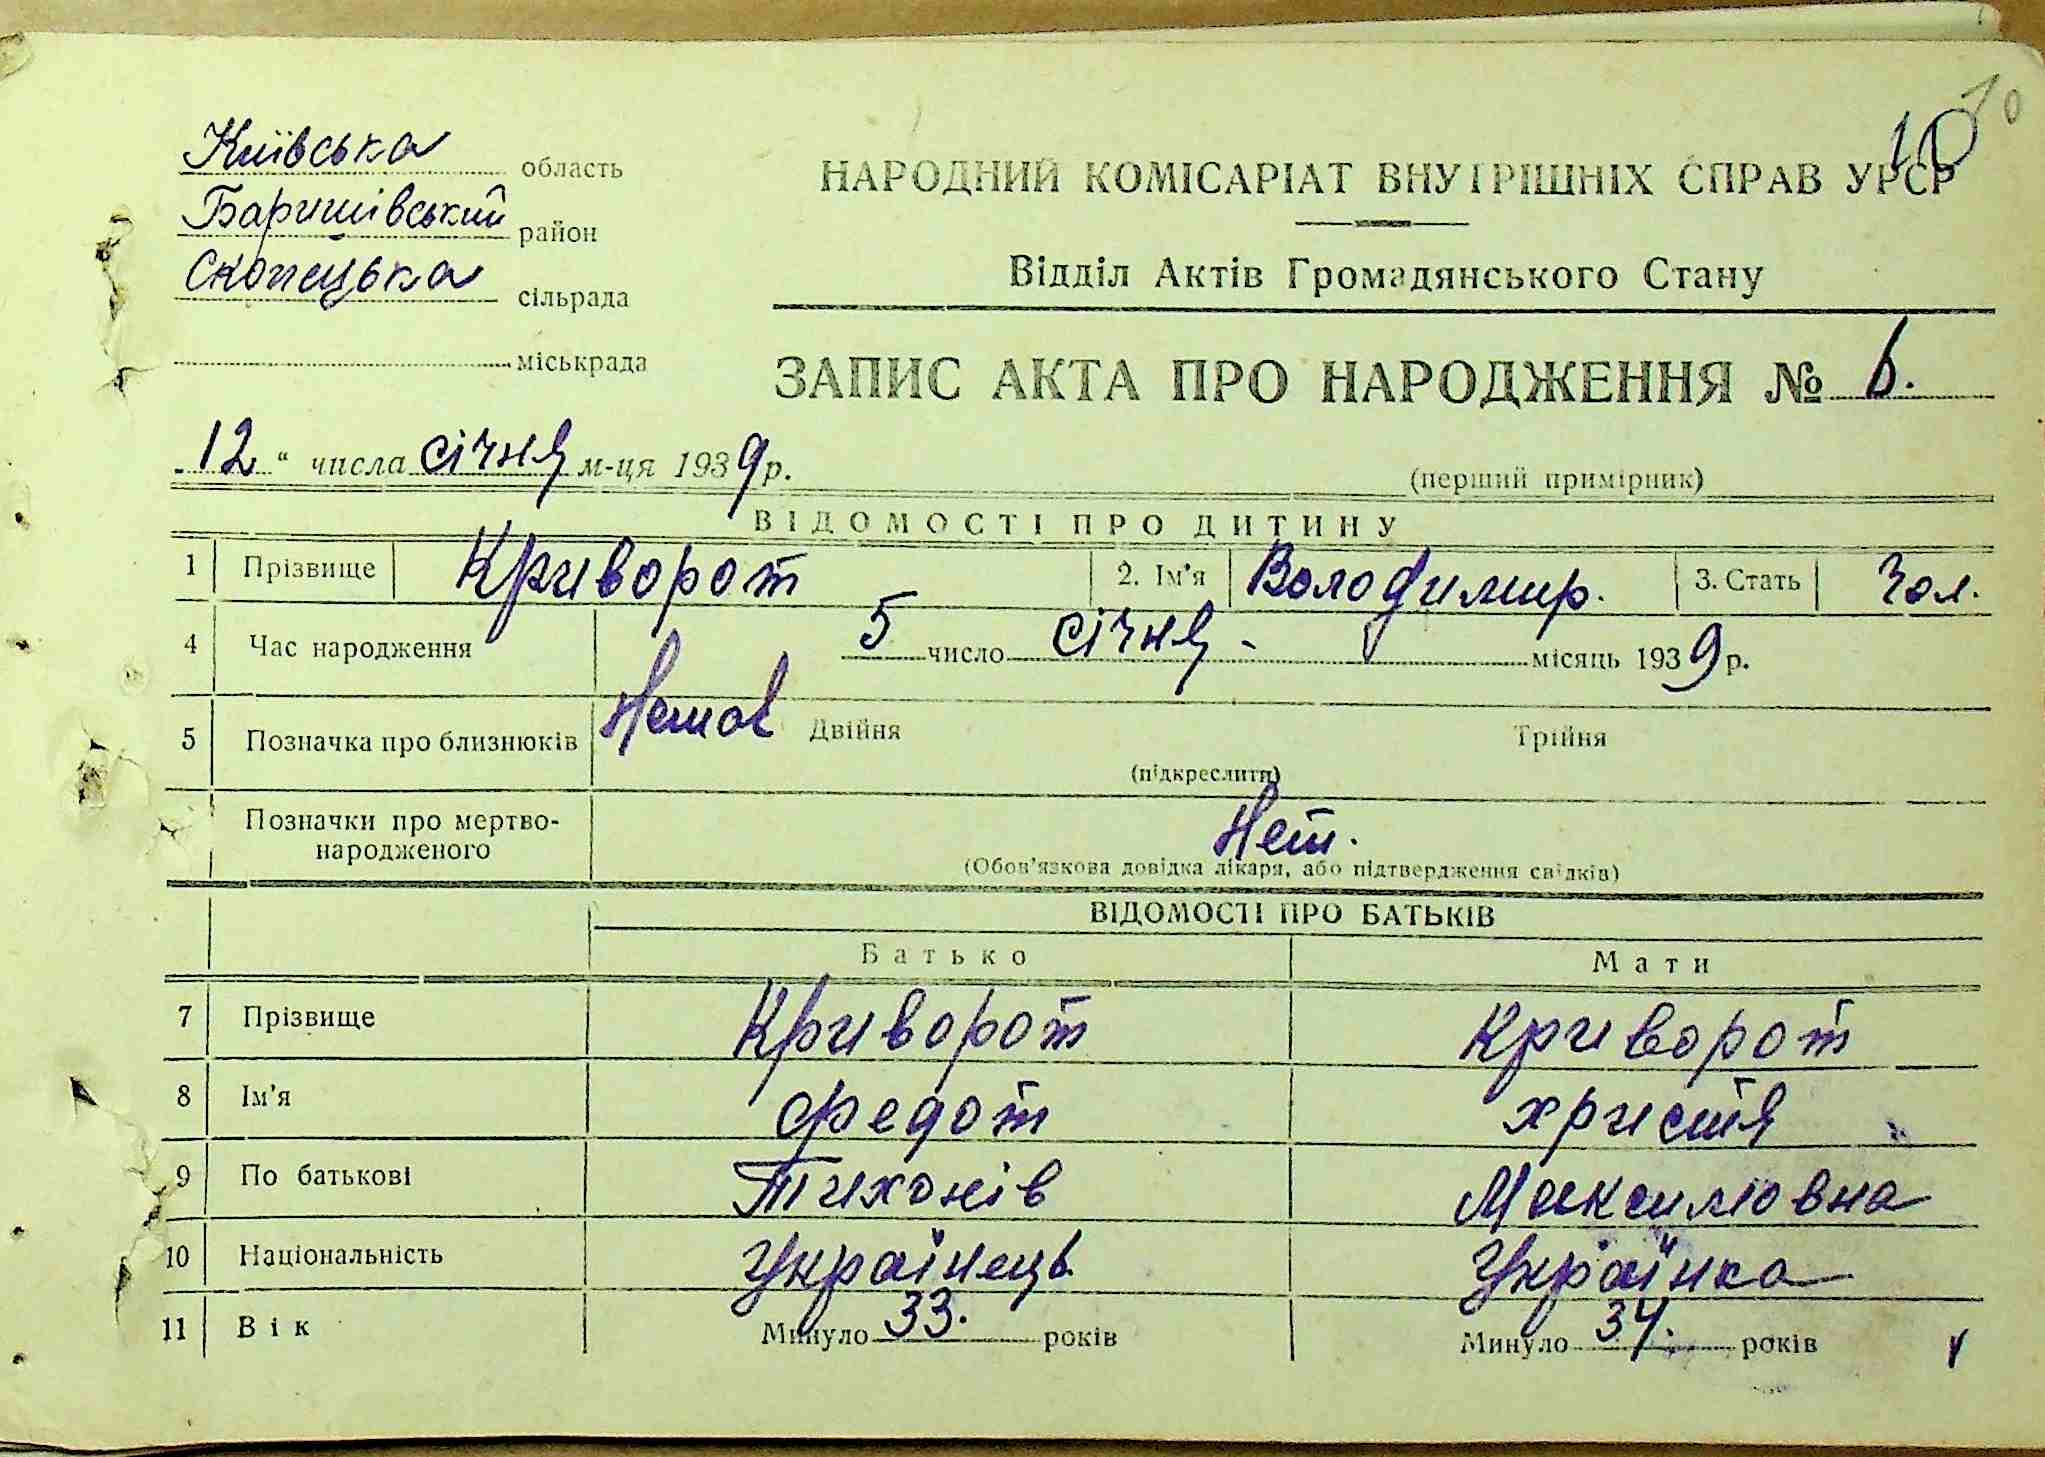 10
10
Київська область
Баришівський район
Скопецька сільрада
міськрада
НАРОДНИЙ КОМІСАРІАТ ВНУТРІШНІХ СПРАВ УРСР
Відділ Актів Громадянського Стану
ЗАПИС АКТА ПРО НАРОДЖЕННЯ № 6.
„12“ числа січня м-ця 1939 р.
(перший примірник)
ВІДОМОСТІ ПРО ДИТИНУ
1 Прізвище Криворот 2. Ім'я Володимир. 3. Стать Чол.
4 Час народження 5 число січня - місяць 1939 р.
5 Позначка про близнюків Двійня Трійня
(підкреслити)
Позначки про мертво-
народженого Нет.
(Обов'язкова довідка лікаря, або підтвердження свідків)
ВІДОМОСТІ ПРО БАТЬКІВ
Батько Мати
7 Прізвище Криворот Криворот
8 Ім'я Федот Христя
9 По батькові Тихонів Максимовна
10 Національність Українець Українка
11 Вік Минуло 33. років Минуло 34. років